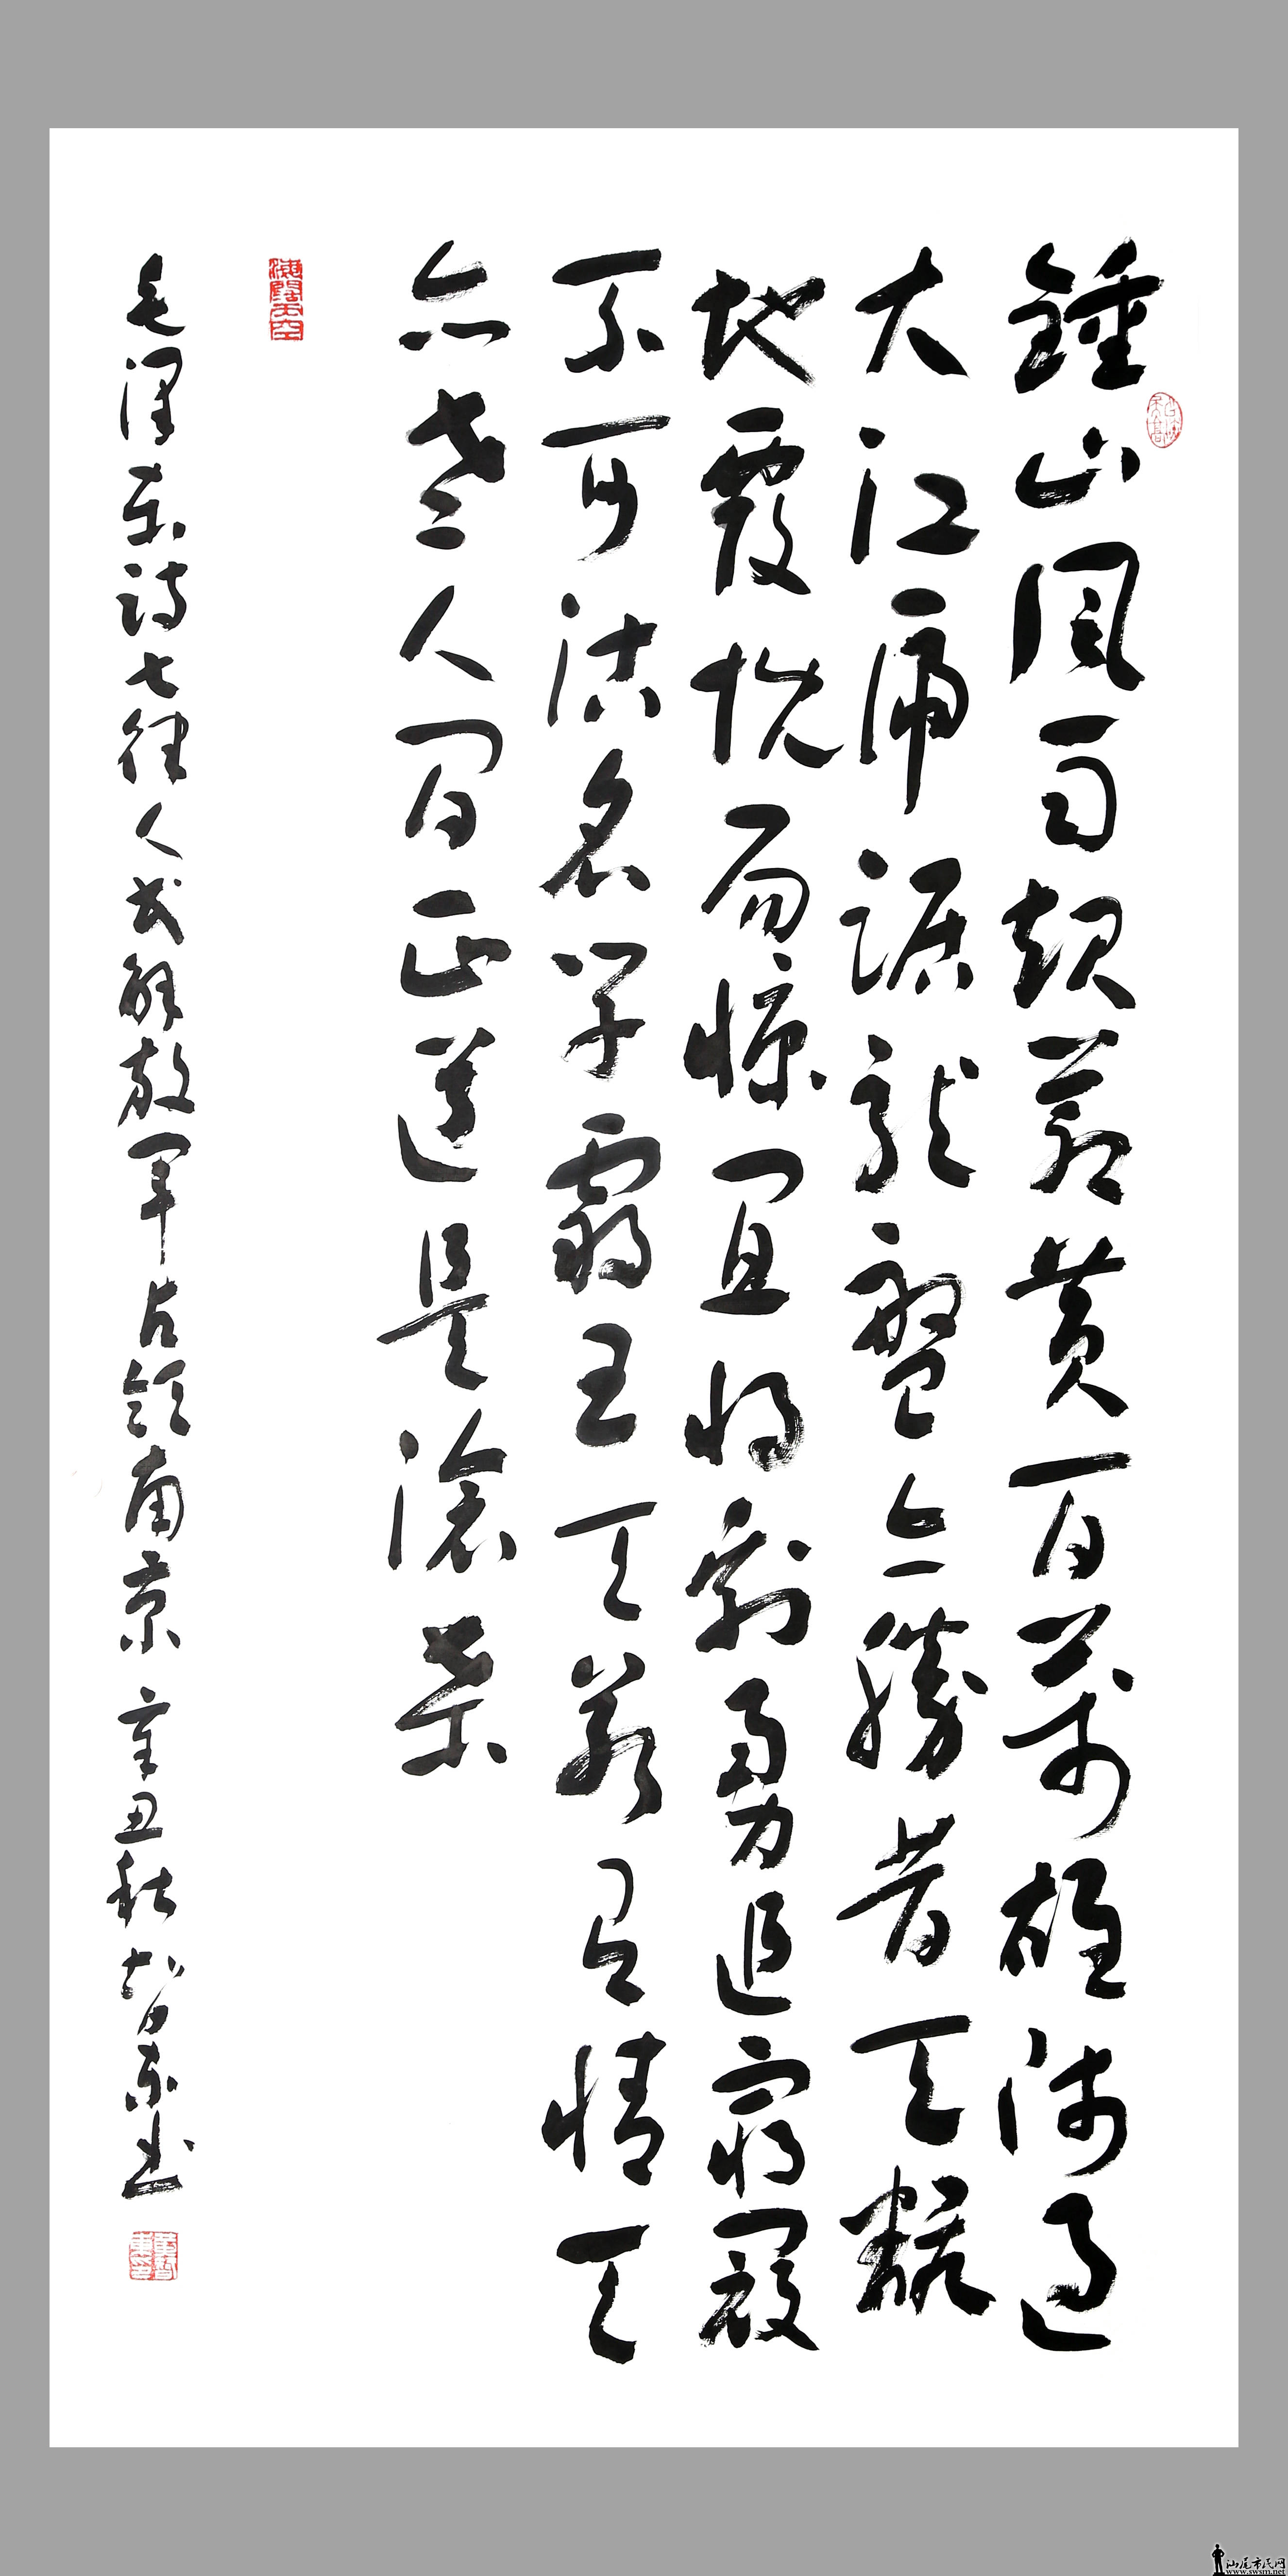 鍾山風雨起蒼黃百萬雄師過
大江虎踞龍盤今勝昔天翻
地覆慨而慷宜將剩勇追窮寇
不可沽名學霸王天若有情天
亦老人間正道是滄桑
海闊天空
毛澤東詩七律人民解放軍占領南京 辛丑秋 智東書
汕尾市民网
www.swsm.net